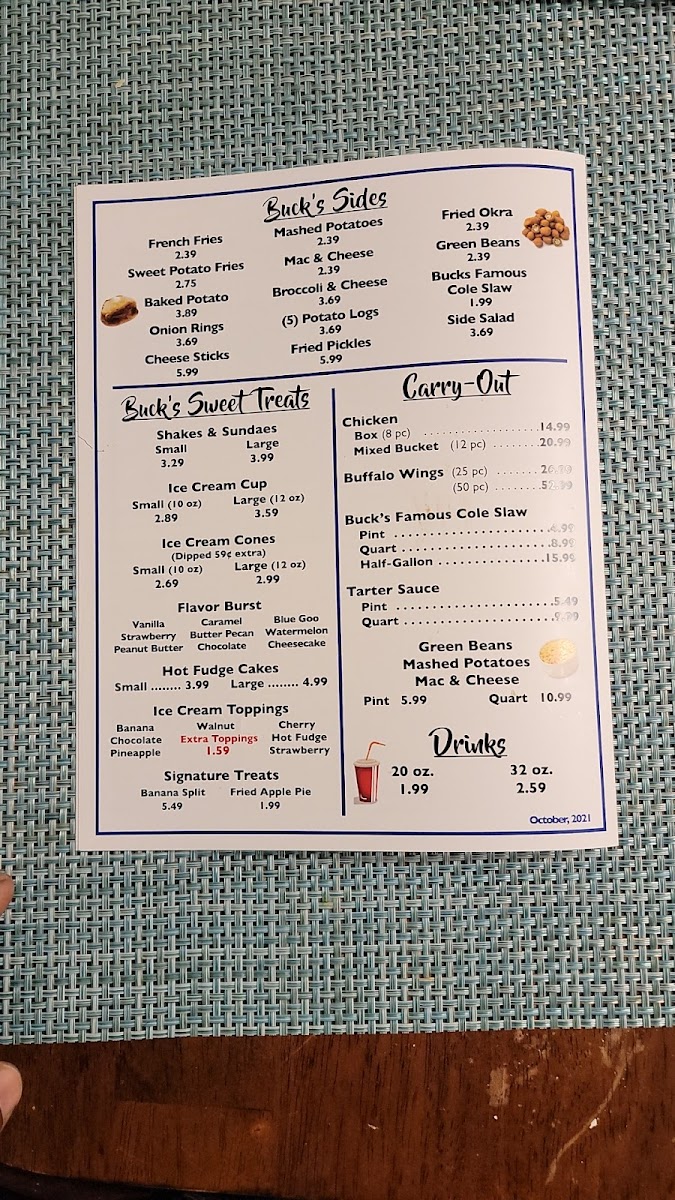 Buck's Sides
French Fries
2.39
Sweet Potato Fries
2.75
Baked Potato
3.89
Onion Rings
3.69
Cheese Sticks
5.99
Mashed Potatoes
2.39
Mac & Cheese
2.39
Broccoli & Cheese
3.69
(5) Potato Logs
3.69
Fried Pickles
5.99
Fried Okra
2.39
Green Beans
2.39
Bucks Famous
Cole Slaw
1.99
Side Salad
3.69
Buck's Sweet Treats
Shakes & Sundaes
Small Large
3.29 3.99
Ice Cream Cup
Small (10 oz) Large (12 oz)
2.89 3.59
Ice Cream Cones
(Dipped 59¢ extra)
Small (10 oz) Large (12 oz)
2.69 2.99
Flavor Burst
Vanilla Caramel Blue Goo
Strawberry Butter Pecan Watermelon
Peanut Butter Chocolate Cheesecake
Hot Fudge Cakes
Small ........ 3.99 Large ........ 4.99
Ice Cream Toppings
Banana Walnut Cherry
Chocolate Extra Toppings Hot Fudge
Pineapple 1.59 Strawberry
Signature Treats
Banana Split Fried Apple Pie
5.49 1.99
Carry-Out
Chicken
Box (8 pc) ....................14.99
Mixed Bucket (12 pc) ........20.99
Buffalo Wings (25 pc) .......
(50 pc) .......
Buck's Famous Cole Slaw
Pint ......................4.99
Quart .....................8.99
Half-Gallon ...............15.99
Tarter Sauce
Pint ......................5.49
Quart .....................
Green Beans
Mashed Potatoes
Mac & Cheese
Pint 5.99 Quart 10.99
Drinks
20 oz. 32 oz.
1.99 2.59
October, 2021